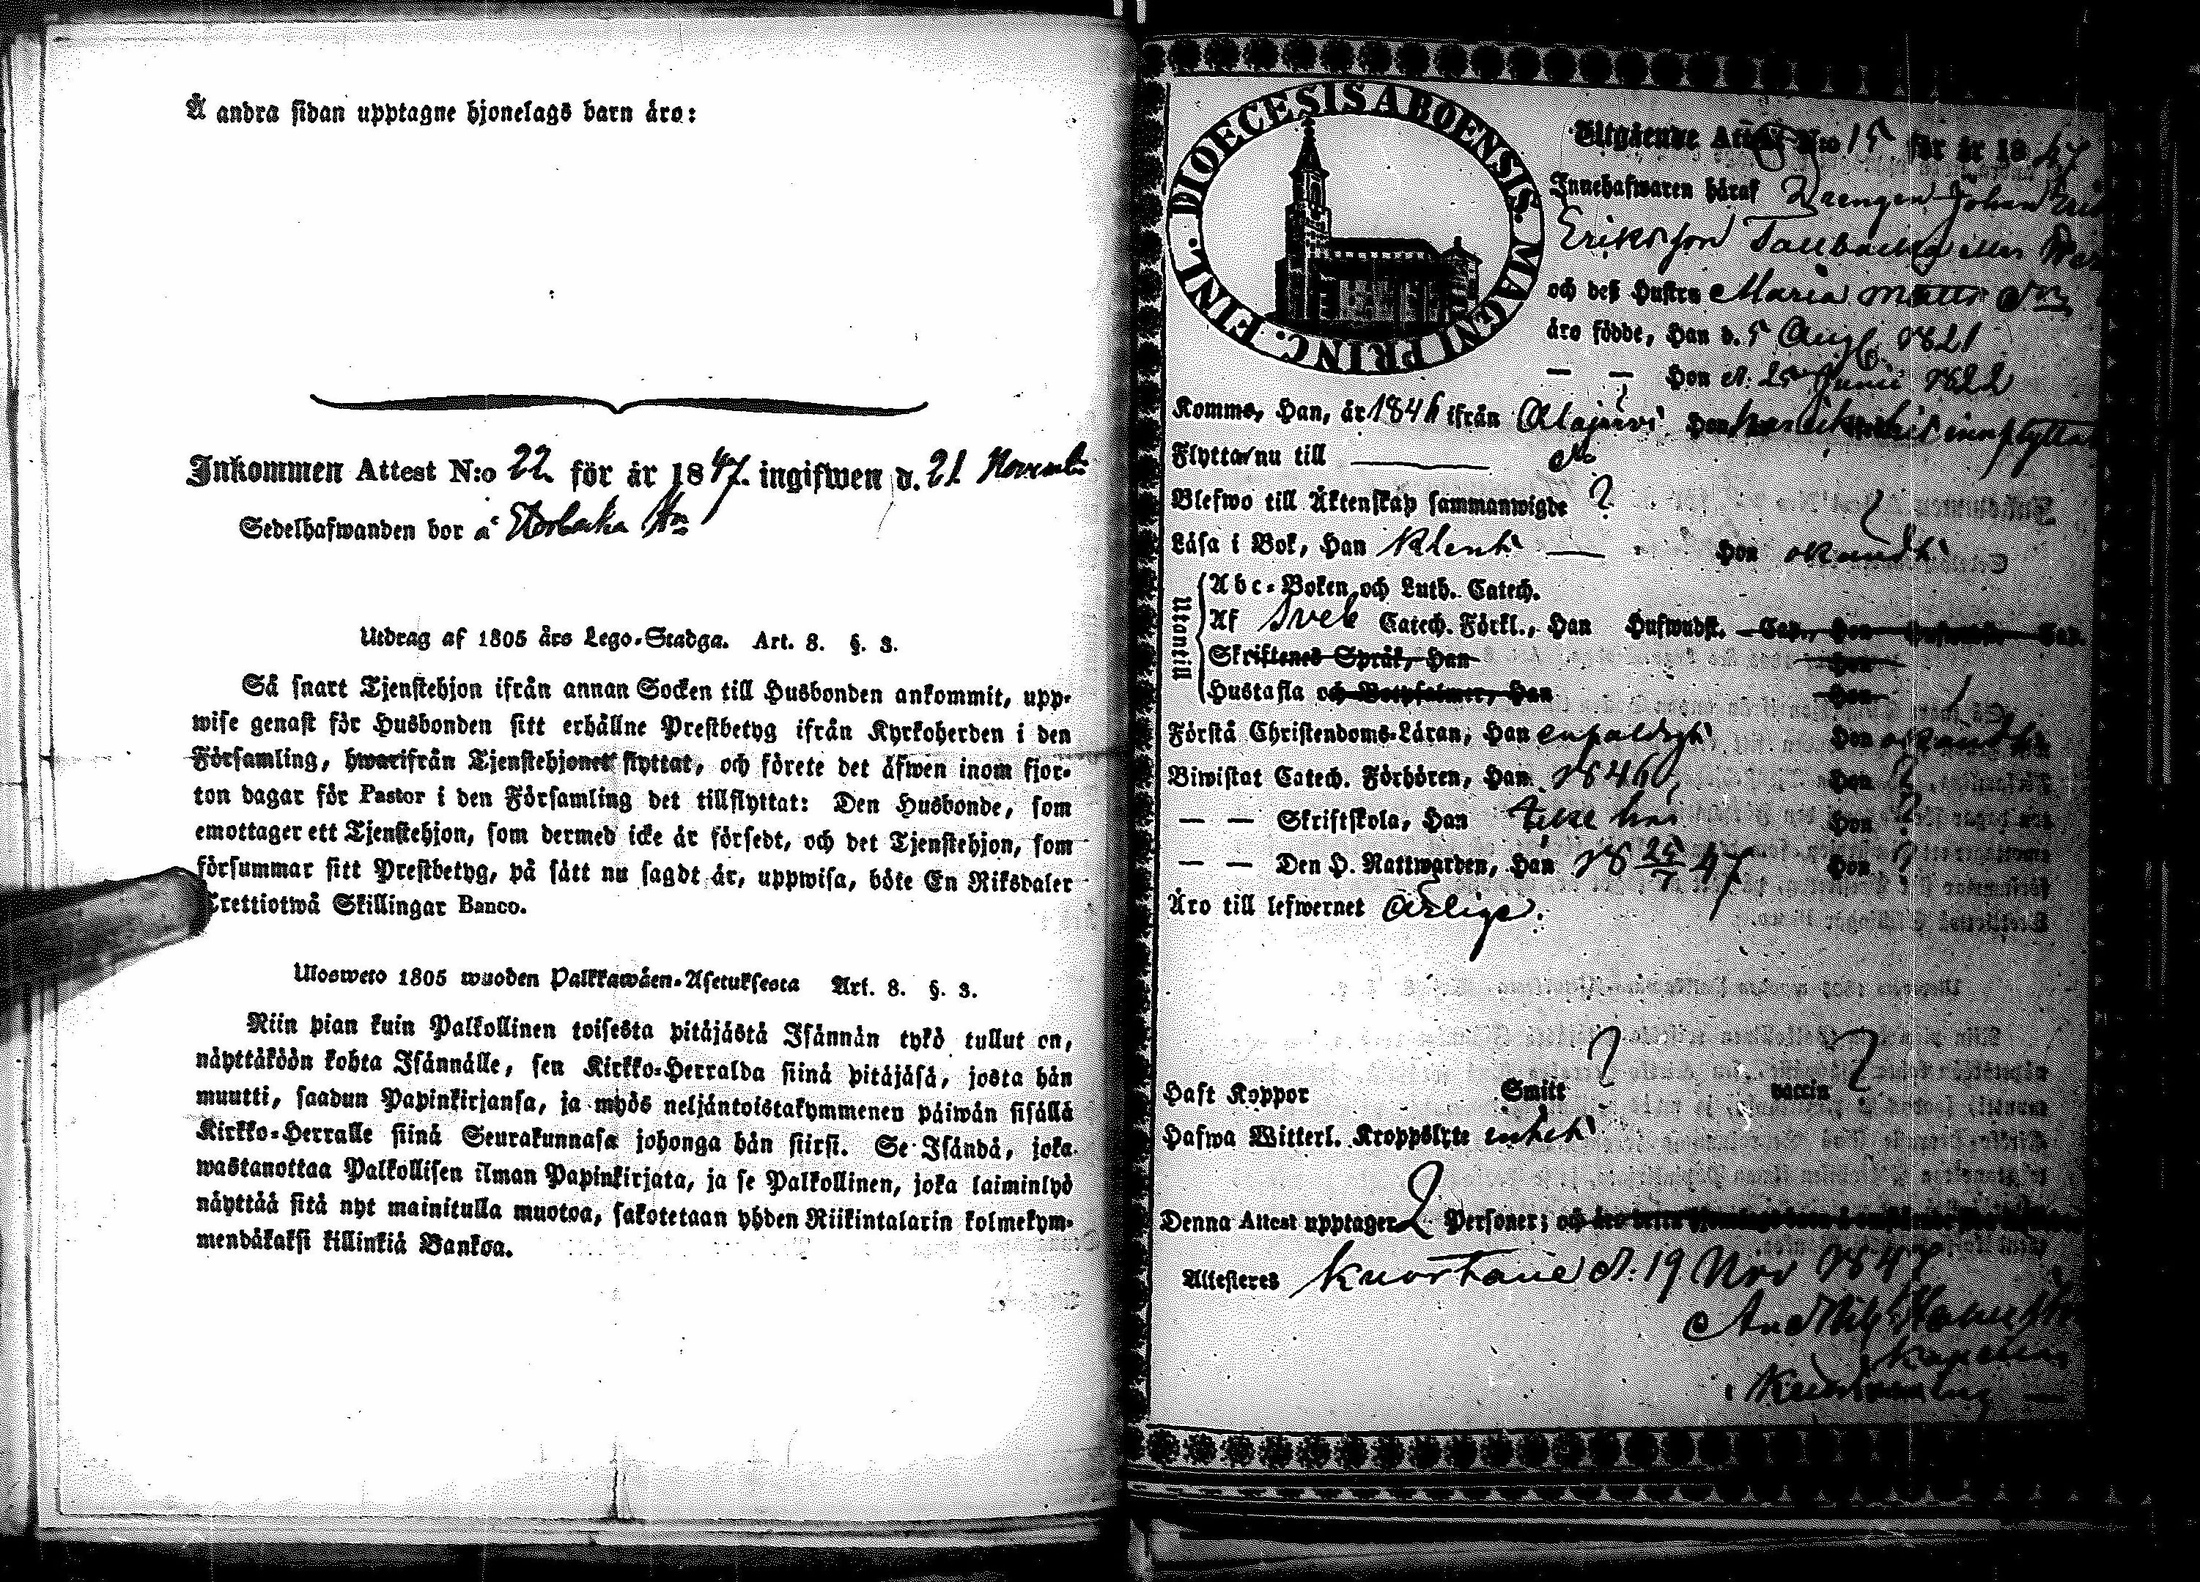 Å andra sidan upptagne hjonelags barn äro:
Inkommen Attest N:o 22 för år 1847. ingifwen d. 21 Novemb:
Sedelhafwanden bor å Storbacka Hn
Utdrag af 1805 års Lego-Stadga. Art. 8. §. 3.
Så snart Tjenstehjon ifrån annan Socken till Husbonden ankommit, upp-
wise genast för Husbonden sitt erhållne Prestbetyg ifrån Kyrkoherden i den
Församling, hwarifrån Tjenstehjonet flyttat, och förete det äfwen inom fjor-
ton dagar för Pastor i den Församling det tillflyttat: Den Husbonde, som
emottager ett Tjenstehjon, som dermed icke är försedt, och det Tjenstehjon, som
försummar sitt Prestbetyg, på sätt nu sagdt är, uppwisa, böte En Riksdaler
Trettiotwå Skillingar Banco.
Ulosweto 1805 wuoden Palkkawäen-Asetuksesta Art. 8. §. 3.
Niin pian kuin Palkollinen toisesta pitäjästä Isännän tykö tullut on,
näyttäköön kohta Isännälle, sen Kirkko-Herralda siinä pitäjäsä, josta hän
muutti, saadun Papinkirjansa, ja myös neljäntoistakymmenen päiwän sisällä
Kirkko-Herralle siinä Seurakunnasa johonga hän siirsi. Se Isändä, joka
wastanottaa Palkollisen ilman Papinkirjata, ja se Palkollinen, joka laiminlyö
näyttää sitä nyt mainitulla muotoa, sakotetaan yhden Riikintalarin kolmekym-
mendäkaksi killinkiä Bankoa.
DIOECESIS ABOENSIS. MAGNI PRINC. FINL.
Utgående Attest N:o 15 för år 1847
Innehafwaren häraf Drengen Johan Eric
Eriksson Tallbacka eller
och deß Hustru Maria Matts dr
äro födde, Han d. 5 Aug 1821
— — Hon d. 25 Junii 1822
Kommo, Han, år 1846 ifrån Alajärvi Hon inflyttat
Flytta nu till —— do
Blefwo till Äktenskap sammanwigde ?
Läsa i Bok, Han klent — Hon okändt
Utantill
Abc-Boken och Luth. Catech.
Af Sveb Catech. Förkl., Han Hufwudst. Cap., Hon Hufwudst. Cap.
Skriftenes Språk, Han Hon
Hustafla och Botpsalmer, Han Hon
Förstå Christendoms-Läran, Han enfaldigt Hon okändt
Biwistat Catech. Förhören, Han 1846, Hon ?
— — Skriftskola, Han icke här Hon ?
— — Den H. Nattwarden, Han 18 25/7 47 Hon ?
Äro till lefwernet Ärlige.
Haft Koppor Smitt ? vaccin ?
Hafwa Witterl. Kroppslyte intet
Denna Attest upptager 2 Personer; och
Attesteres Kuortane d. 19 Nov 1847
Kapellan